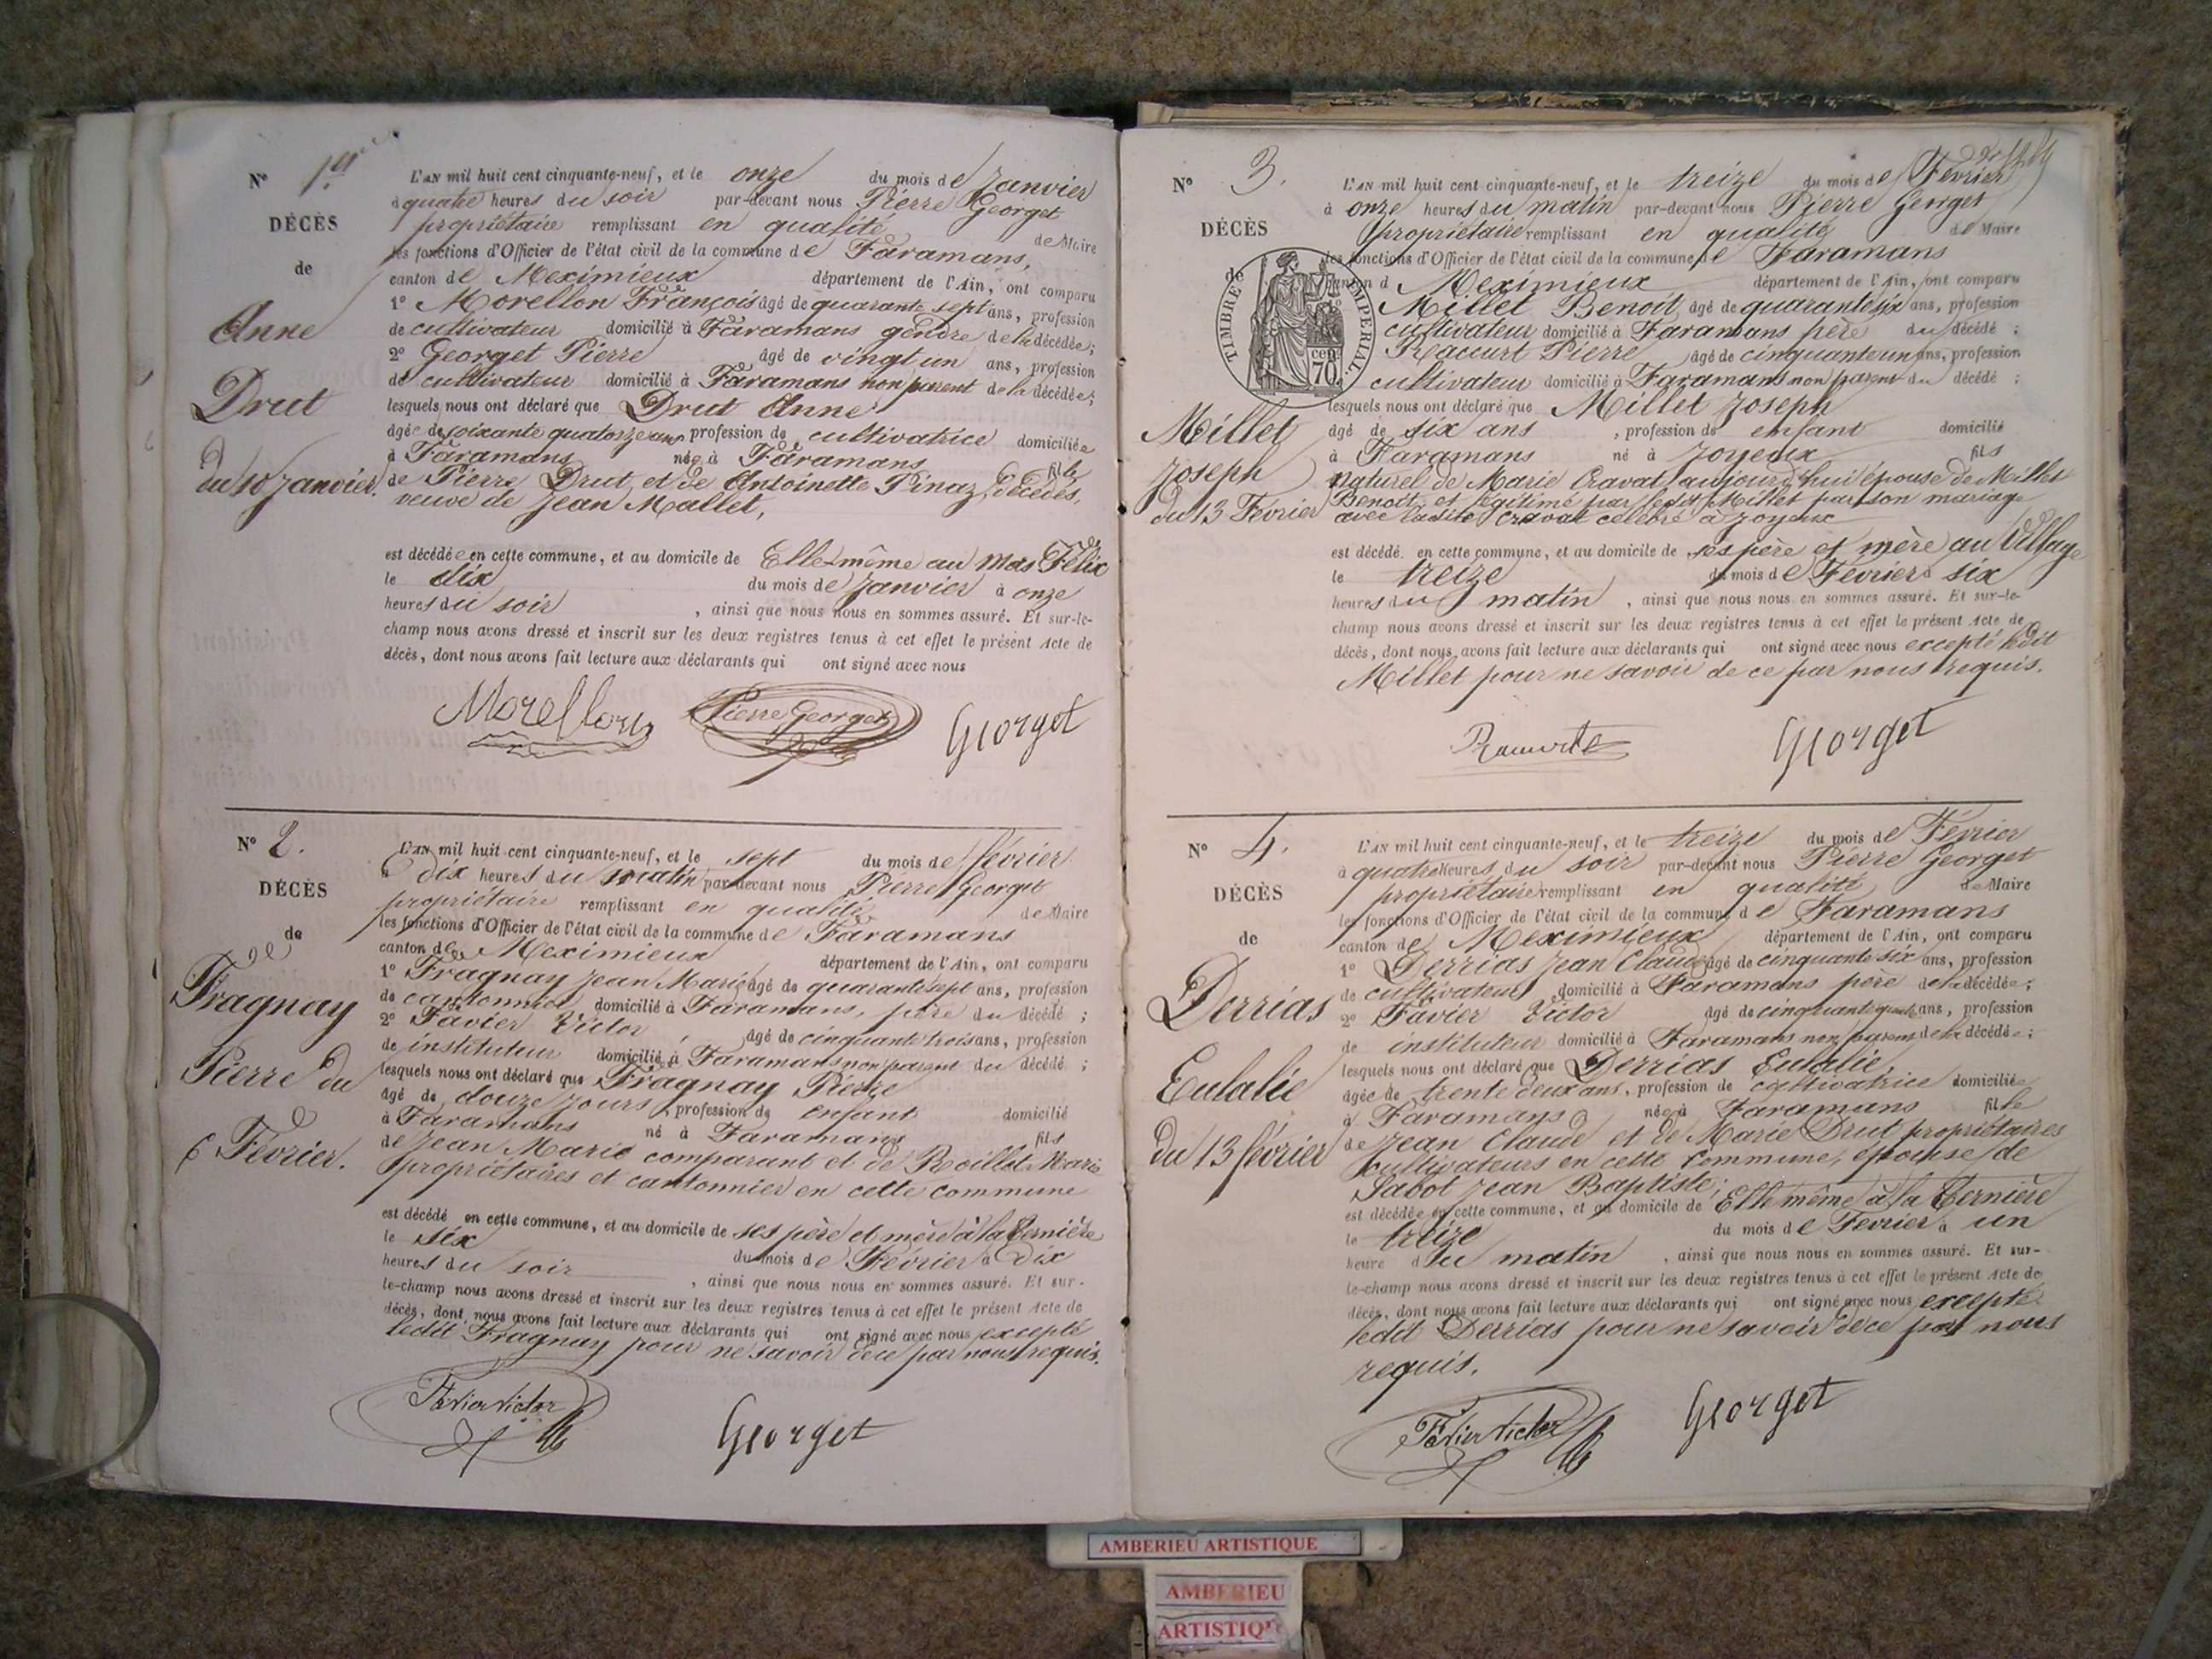 N° 1er
DÉCÈS
de
Anne
Drut
du 10 Janvier.
L'AN mil huit cent cinquante-neuf, et le onze du mois de Janvier
à quatre heures du soir par-devant nous Pierre Georget
propriétaire remplissant en qualité de Maire
les fonctions d'Officier de l'état civil de la commune de Faramans,
canton de Meximieux département de l'Ain, ont comparu
1° Morellon François âgé de quarante sept ans, profession
de cultivateur domicilié à Faramans gendre de la décédée;
2° Georget Pierre âgé de vingt un ans, profession
de cultivateur domicilié à Faramans non parent de la décédée;
lesquels nous ont déclaré que Drut Anne
âgée de soixante quatorze ans profession de cultivatrice domiciliée
à Faramans née à Faramans fille
de Pierre Drut et de Antoinette Pinaz, décédés,
veuve de Jean Mallet,
est décédée en cette commune, et au domicile de Elle même au Mas Félix
le dix du mois de Janvier à onze
heures du soir , ainsi que nous nous en sommes assuré. Et sur-le-
champ nous avons dressé et inscrit sur les deux registres tenus à cet effet le présent Acte de
décès, dont nous avons fait lecture aux déclarants qui ont signé avec nous
Morellon Pierre Georget Georget
N° 2.
DÉCÈS
de
Fragnay
Pierre du
6 Février.
L'AN mil huit cent cinquante-neuf, et le sept du mois de février
à dix heures du matin par-devant nous Pierre Georget
propriétaire remplissant en qualité de Maire
les fonctions d'Officier de l'état civil de la commune de Faramans
canton de Meximieux département de l'Ain, ont comparu
1° Fragnay Jean Marie âgé de quarante sept ans, profession
de cantonnier domicilié à Faramans, père du décédé ;
2° Favier Victor âgé de cinquante trois ans, profession
de instituteur domicilié à Faramans non parent du décédé ;
lesquels nous ont déclaré que Fragnay Pierre
âgé de douze jours , profession de enfant domicilié
à Faramans né à Faramans fils
de Jean Marie comparant et de Roillet Marie
propriétaires et cantonnier en cette commune
est décédé en cette commune, et au domicile de ses père et mère à la Ternière
le six du mois de Février à Dix
heures du soir , ainsi que nous nous en sommes assuré. Et sur-
le-champ nous avons dressé et inscrit sur les deux registres tenus à cet effet le présent Acte de
décès, dont nous avons fait lecture aux déclarants qui ont signé avec nous excepté
ledit Fragnay pour ne savoir de ce par nous requis.
Favier Victor Georget
N° 3.
DÉCÈS
de
TIMBRE IMPÉRIAL.
cen. 70
Millet
Joseph
du 13 Fevrier
L'AN mil huit cent cinquante-neuf, et le treize du mois de Février
à onze heures du matin par-devant nous Pierre Georget
propriétaire remplissant en qualité de Maire
les fonctions d'Officier de l'état civil de la commune de Faramans
canton d Meximieux département de l'Ain, ont comparu
Millet Benoit, âgé de quarante six ans, profession
cultivateur domicilié à Faramans père du décédé ;
Raccurt Pierre âgé de cinquante un ans, profession
cultivateur domicilié à Faramans non parent du décédé ;
lesquels nous ont déclaré que Millet Joseph
âgé de six ans , profession de enfant domicilié
à Faramans né à Joyeux fils
naturel de Marie Cravat aujourd'hui épouse de Millet
Benoit et légitimé par ledit Millet par son mariage
avec ladite Cravat célébré à Joyeux
est décédé en cette commune, et au domicile de ses père et mère au Village
le treize du mois de Février à six
heures du matin , ainsi que nous nous en sommes assuré. Et sur-le-
champ nous avons dressé et inscrit sur les deux registres tenus à cet effet le présent Acte de
décès, dont nous avons fait lecture aux déclarants qui ont signé avec nous excepté ledit
Millet pour ne savoir de ce par nous requis.
Georget
N° 4.
DÉCÈS
de
Derrias
Eulalie
du 13 février
L'AN mil huit cent cinquante-neuf, et le treize du mois de Février
à quatre heures du soir par-devant nous Pierre Georget
propriétaire remplissant en qualité de Maire
les fonctions d'Officier de l'état civil de la commune de Faramans
canton de Meximieux département de l'Ain, ont comparu
1° Derrias Jean Claude âgé de cinquante six ans, profession
de cultivateur domicilié à Faramans père de la décédée;
2° Favier Victor âgé de cinquante ans, profession
de instituteur domicilié à Faramans non parent de la décédée;
lesquels nous ont déclaré que Derrias Eulalie,
âgée de trente deux ans, profession de cultivatrice domiciliée
à Faramans née à Faramans fille
de Jean Claude et de Marie Drut propriétaires
cultivateurs en cette commune, épouse de
Sabot Jean Baptiste;
est décédée en cette commune, et au domicile de Elle même à la Ternière
le treize du mois de Fevrier à un
heure du matin , ainsi que nous nous en sommes assuré. Et sur-
le-champ nous avons dressé et inscrit sur les deux registres tenus à cet effet le présent Acte de
décès, dont nous avons fait lecture aux déclarants qui ont signé avec nous excepté
ledit Derrias pour ne savoir de ce par nous
requis.
Favier Victor Georget
AMBERIEU ARTISTIQUE
AMBERIEU
ARTISTIQUE